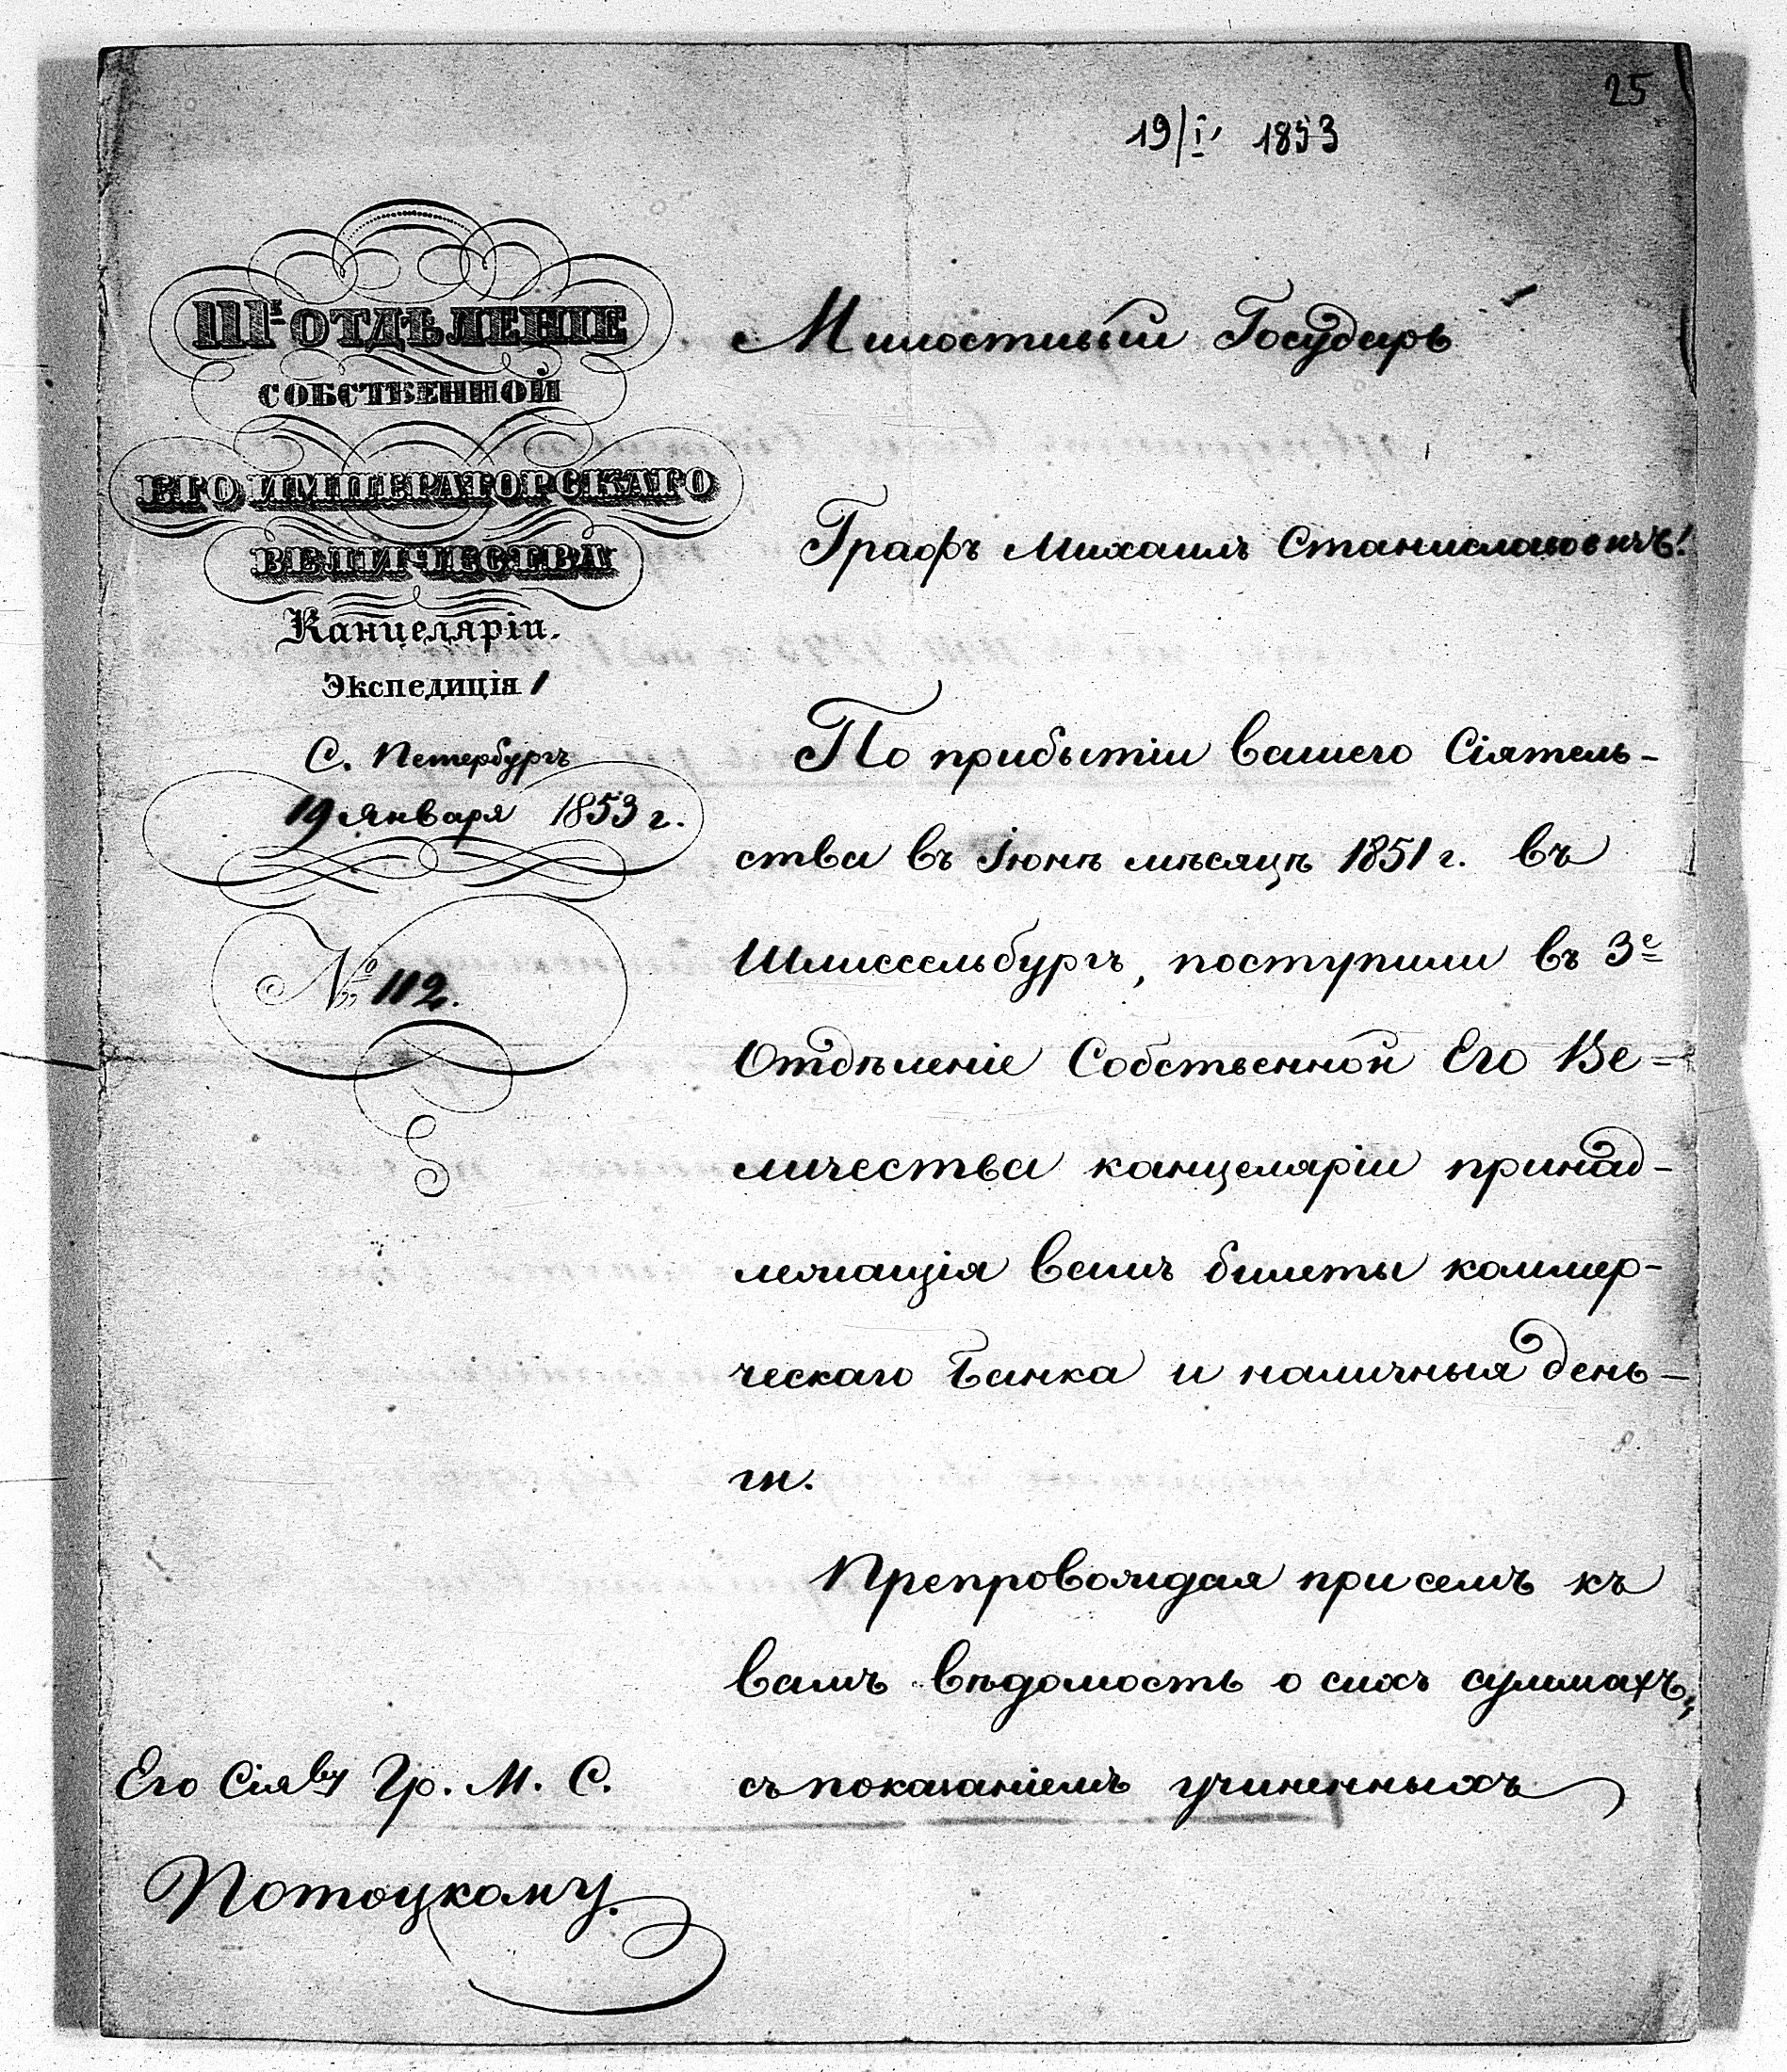 25
19/I 1853
III-е ОТДѢЛЕНІЕ
СОБСТВЕННОЙ
ЕГО ИМПЕРАТОРСКАГО
ВЕЛИЧЕСТВА
Канцеляріи.
Экспедиція 1
С. Петербургъ
19 января 1853 г.
№ 112.
Милостивый Государь
Графъ Михаилъ Станиславовичъ!
По прибытіи вашего Сіятель-
ства въ Іюнѣ мѣсяцѣ 1851 г. въ
Шлиссельбургъ, поступили въ 3е
Отдѣленіе Собственной Его Ве-
личества канцеляріи принад-
лежащія вамъ билеты коммер-
ческаго Банка и наличныя день-
ги.
Препровождая при семъ къ
вамъ вѣдомость о сихъ суммахъ,
съ показаніемъ учиненныхъ
Его Сіяву Гр. М. С.
Потоцкому.